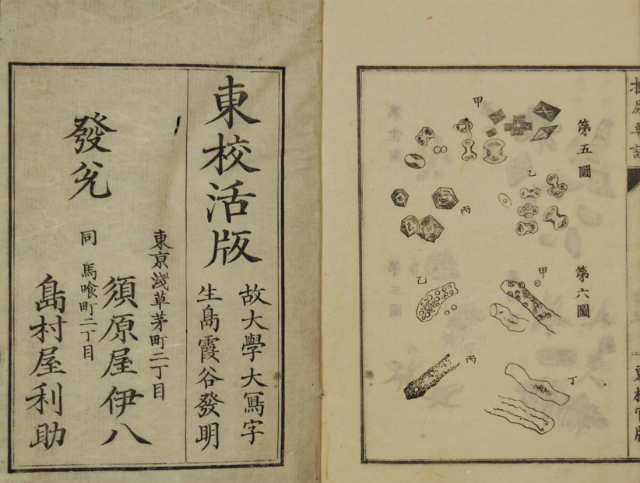 東校活版
故大學大寫字
生島霞谷發明
發兌
東京淺草茅町二丁目
須原屋伊八
同 馬喰町二丁目
島村屋利助
第五圖
甲
乙
丙
第六圖
甲
乙
丙
丁